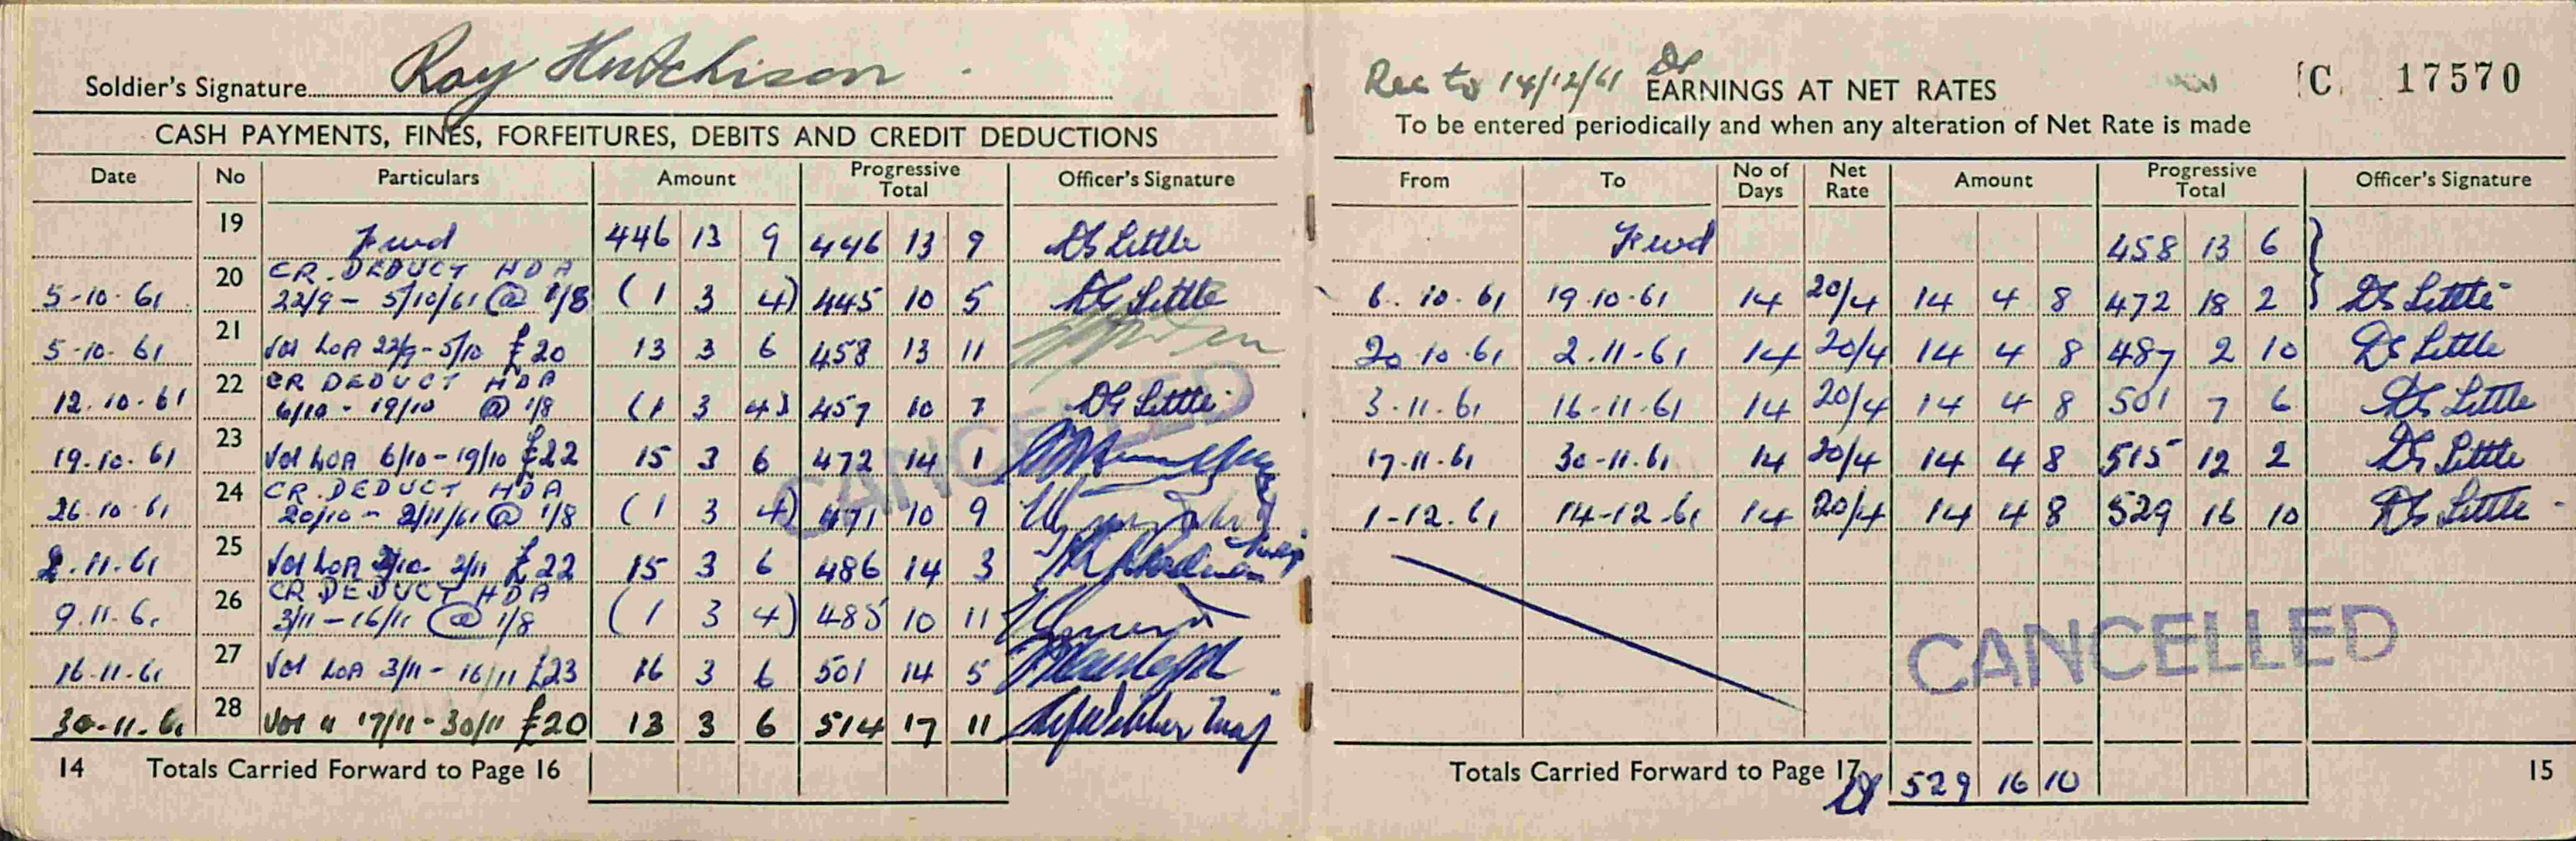 Soldier's Signature Roy Hutchison
CASH PAYMENTS, FINES, FORFEITURES, DEBITS AND CREDIT DEDUCTIONS
Date No Particulars Amount Progressive Total Officer's Signature
19 Fwd 446 13 9 446 13 9 DG Little
5-10-61 20 CR. DEDUCT HDA 22/9 - 5/10/61 @ 1/8 (1 3 4) 445 10 5 DG Little
5-10-61 21 Vol LOA 22/9-5/10 £20 13 3 6 458 13 11
12.10.61 22 CR DEDUCT HDA 6/10 - 19/10 @ 1/8 (1 3 4) 457 10 7 DG Little
19.10.61 23 Vol LOA 6/10-19/10 £22 15 3 6 472 14 1
26.10.61 24 CR. DEDUCT HDA 20/10 - 2/11/61 @ 1/8 (1 3 4) 471 10 9
2.11.61 25 Vol LOA 2/10- 2/11 £22 15 3 6 486 14 3
9.11.61 26 CR DEDUCT HDA 3/11 - 16/11 @ 1/8 (1 3 4) 485 10 11
16-11-61 27 Vol LOA 3/11 - 16/11 £23 16 3 6 501 14 5
30-11-61 28 Vol " 17/11-30/11 £20 13 3 6 514 17 11 Maj
CANCELLED
14 Totals Carried Forward to Page 16
Rec to 14/12/61
EARNINGS AT NET RATES C. 17570
To be entered periodically and when any alteration of Net Rate is made
From To No of Days Net Rate Amount Progressive Total Officer's Signature
Fwd 458 13 6
6.10.61 19.10.61 14 20/4 14 4 8 472 18 2 DG Little
20.10.61 2.11-61 14 20/4 14 4 8 487 2 10 DG Little
3.11.61 16-11-61 14 20/4 14 4 8 501 7 6 DG Little
17.11.61 30-11.61 14 20/4 14 4 8 515 12 2 DG Little
1-12.61 14-12-61 14 20/4 14 4 8 529 16 10 DG Little
CANCELLED
Totals Carried Forward to Page 17 529 16 10
15